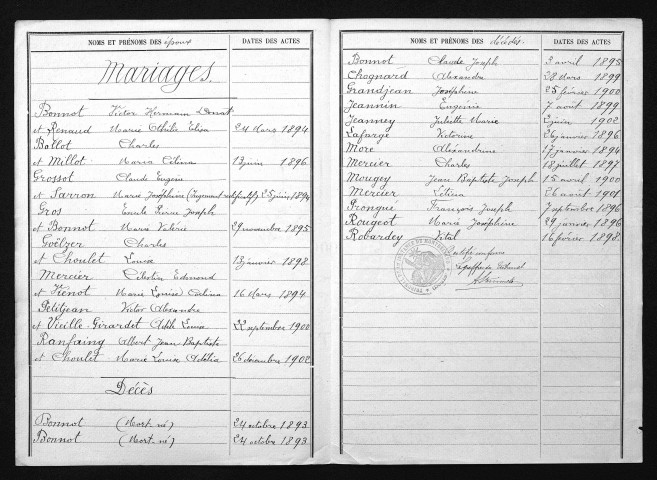 NOMS ET PRÉNOMS DES époux DATES DES ACTES
Mariages
Bonnot Victor Hermann Donat
et Renaud Marie Othilie Elisa 24 Mars 1894
Ballot Charles
et Millot Maria Célina 13 juin 1896
Grossot Claude Eugène
et Sarron Marie Joséphine (Jugement rectificatif) 25 juin 1894
Gros Emile Pierre Joseph
et Bonnot Marie Valérie 29 novembre 1895
Goëlzer Charles
et Choulet Louise 13 janvier 1898
Mercier Célestin Edmond
et Hénot Marie Louise Célina 16 Mars 1894
Petitjean Victor Alexandre
et Vieille-Girardet Adèle Louise 22 septembre 1900
Ranfaing Albert Jean-Baptiste
et Choulet Marie Louise Adélia 26 décembre 1902
Décès
Bonnot (Mort-né) 24 octobre 1893
Bonnot (Mort-né) 24 octobre 1893
NOMS ET PRÉNOMS DES décédés DATES DES ACTES
Bonnot Claude Joseph 3 avril 1895
Chognard Alexandre 28 Mars 1899
Grandjean Joséphine 25 février 1900
Jeannin Eugénie 7 août 1899
Jeanney Juliette Marie 2 juin 1902
Lafarge Victorine 26 janvier 1896
More Alexandrine 17 janvier 1894
Mercier Charles 18 juillet 1897
Mougey Jean Baptiste Joseph 15 avril 1900
Mercier 26 août 1901
Prongué François Joseph 7 septembre 1896
Rougeot Marie Joséphine 29 janvier 1896
Robardey Vital 16 février 1898
Certifié conforme
Le greffier du Tribunal